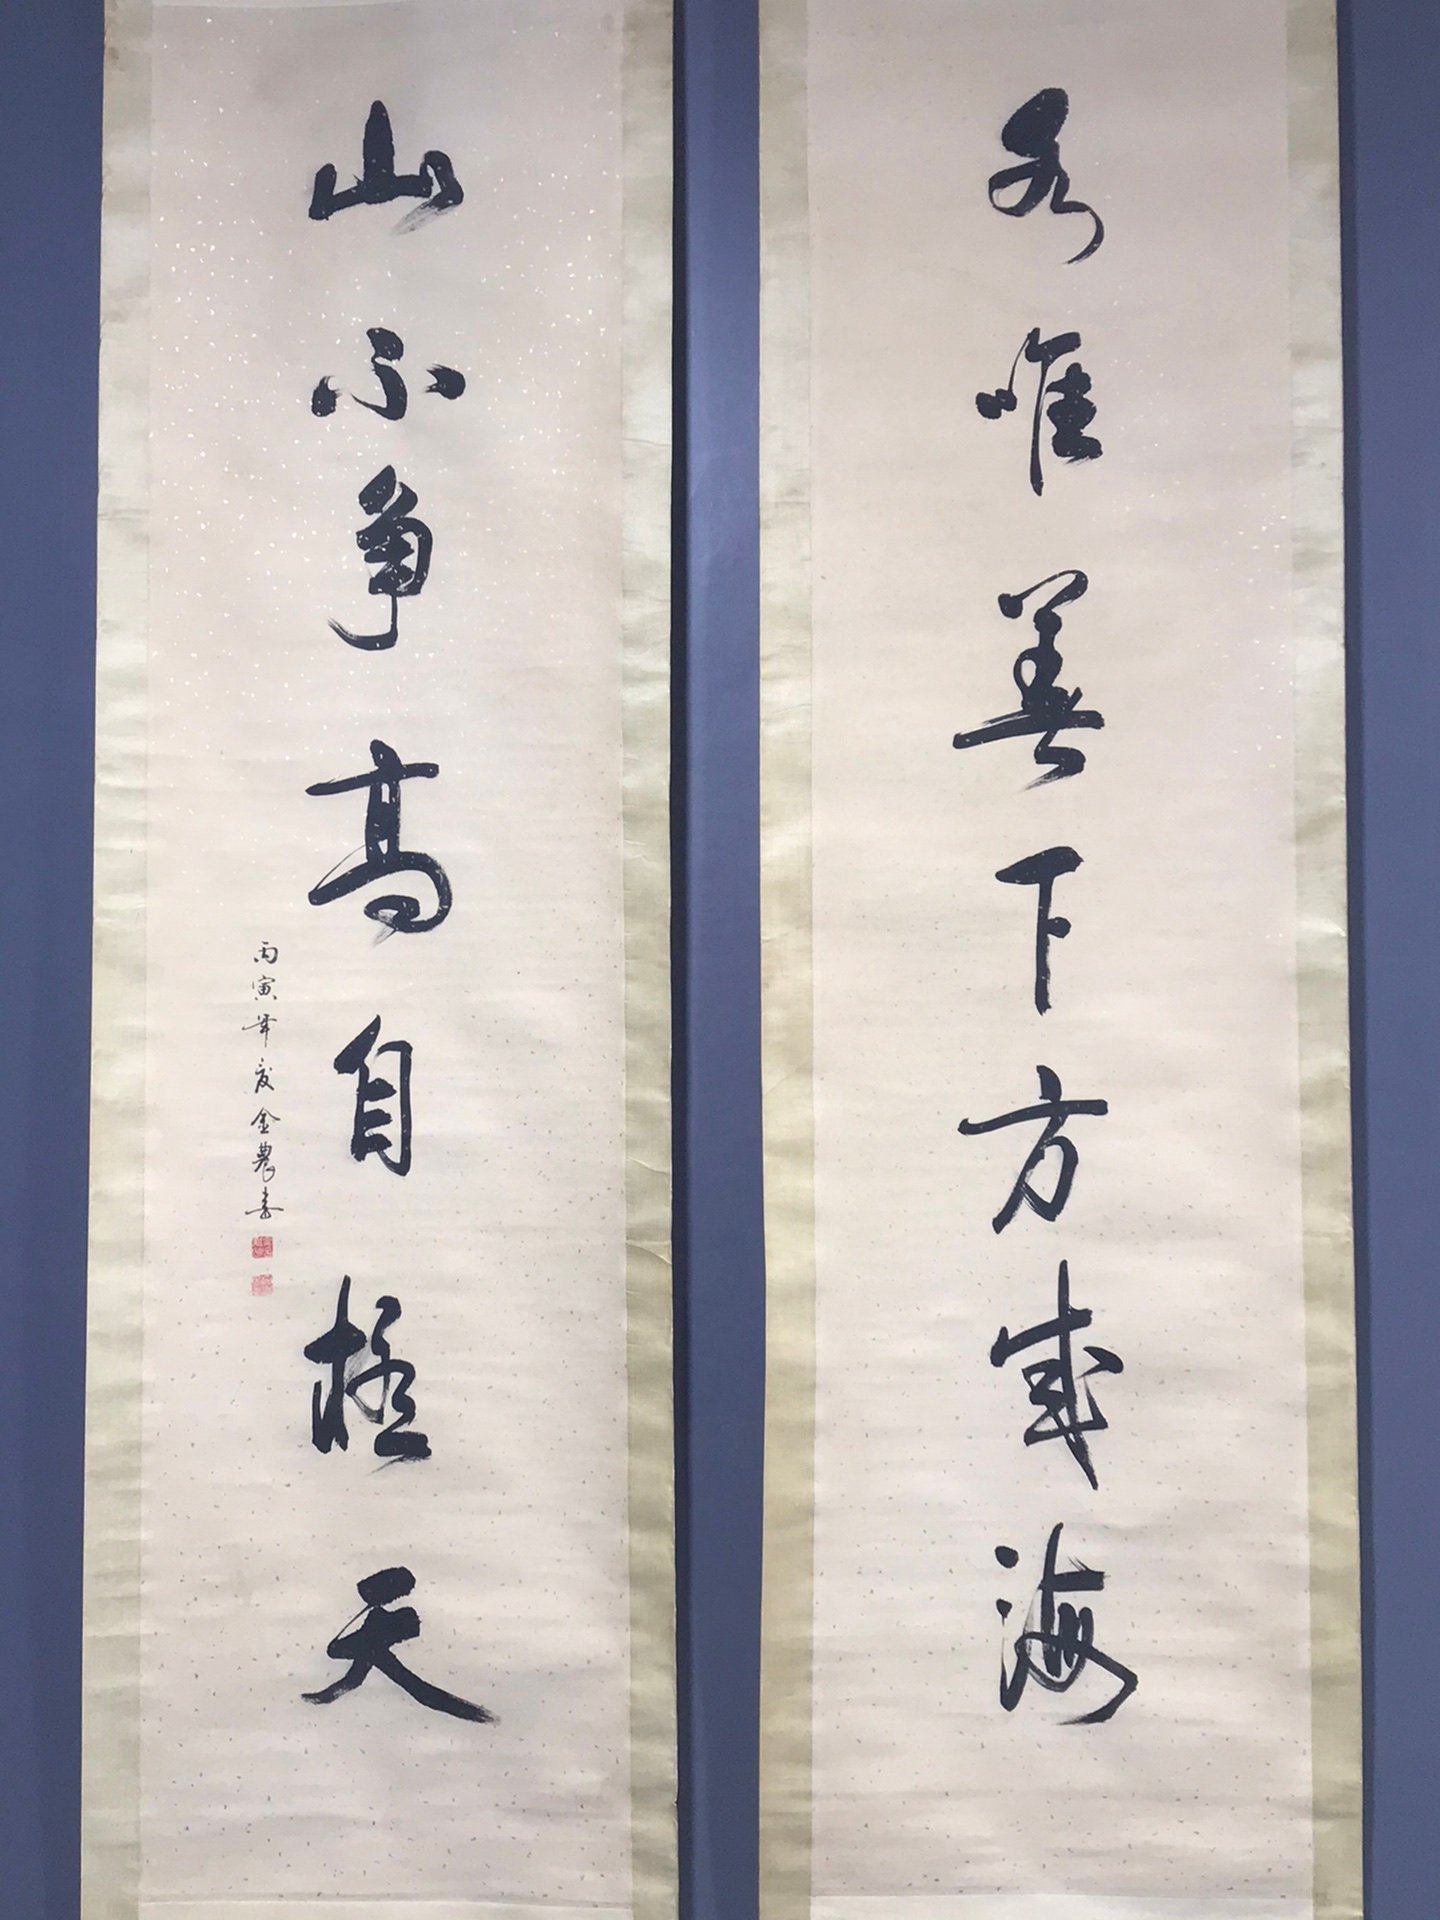 水唯善下方成海
山不争高自极天
丙寅年夏金農書